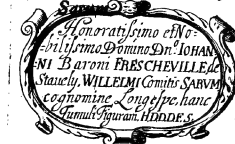 Honoratissimo et No-
bilissimo Domino Dnº. IOHAN-
NI Baroni FRESCHEVILLE de
Stavely, WILLELMI Comitis SARUM
cognomine Longespe, hanc
Tumuli Figuram. H.D.D.E.S.